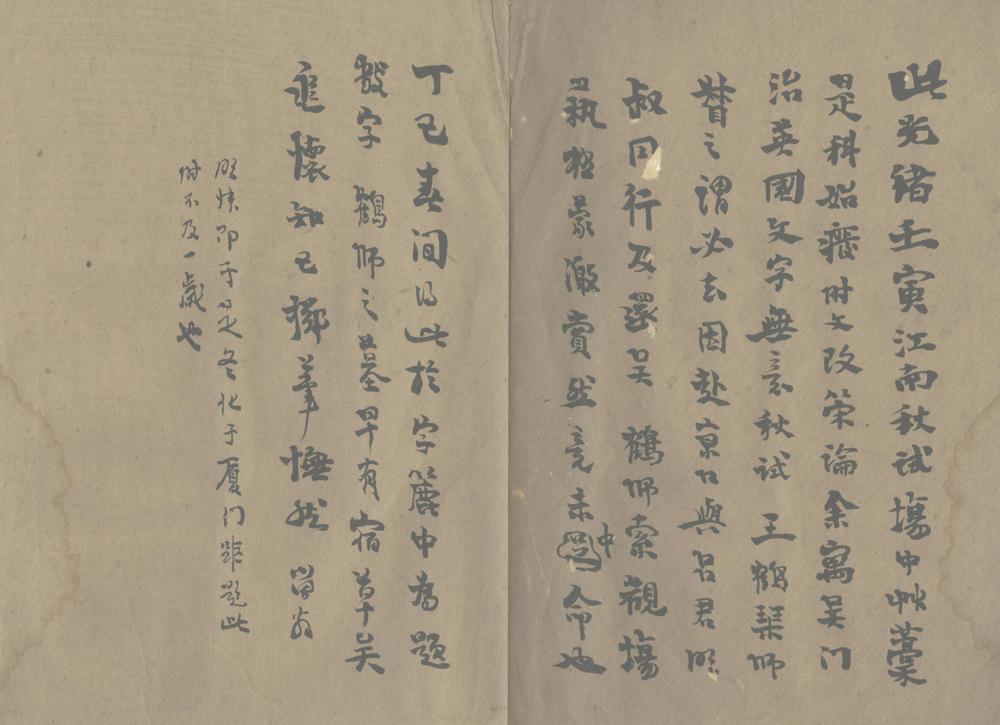 此光緒壬寅江南秋試塲中艸藁
是科始癈时文改策論余寓吴门
治英國文字無意秋試 王鶴琹師
督之謂必去因赴京口與呂君眀
叔同行及還吴 鶴師索觀塲
蓺極蒙激賞然竟未中命也
丁巳春间得此於字簏中為題
數字 鶴師之墓早有宿草矣
追懷知己擲筆憮然
即于是冬化于厦门距題此
时不及一歲也